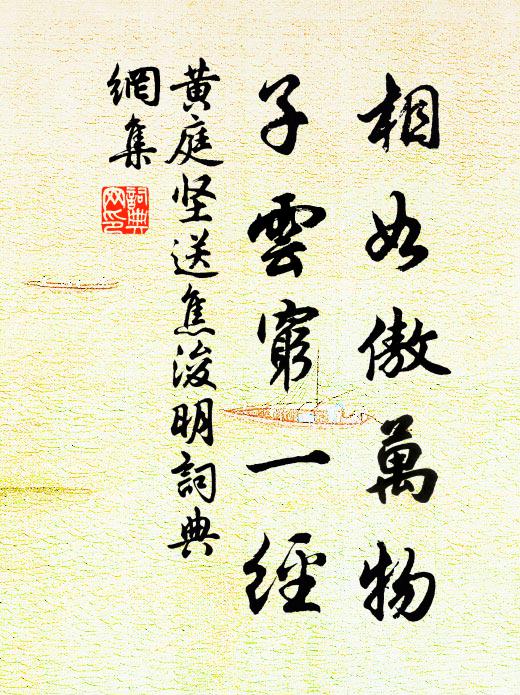 相如傲萬物
子雲窮一經
黃庭坚送焦浚明詞典
網集
詞典
网印